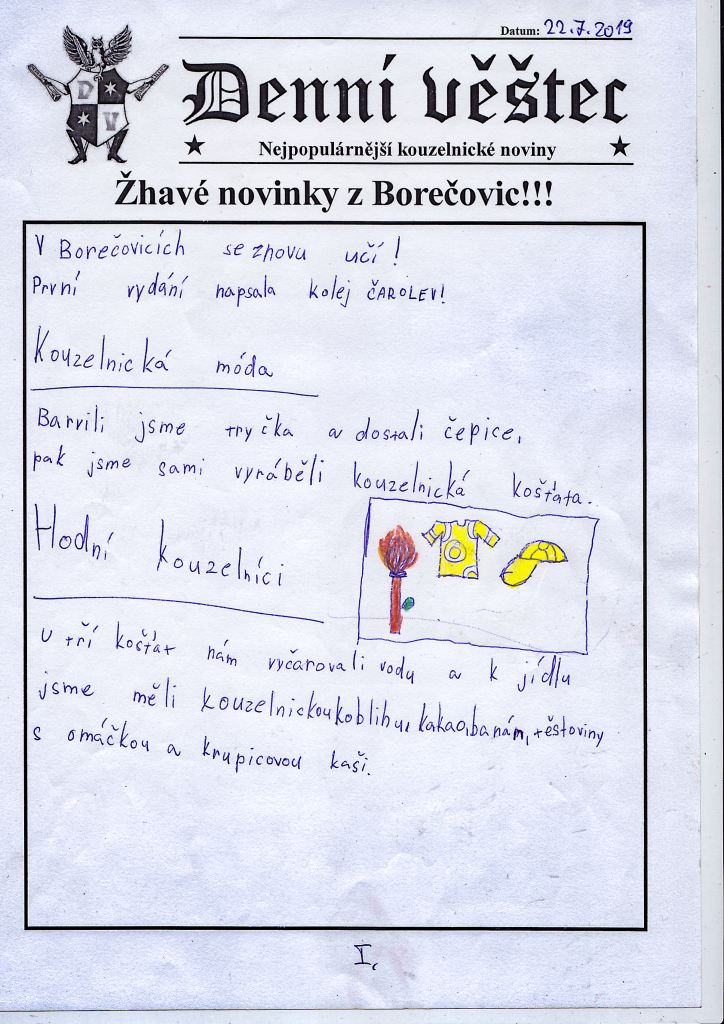 Datum: 22.7.2019
D V
Denní věštec
★ Nejpopulárnější kouzelnické noviny ★
Žhavé novinky z Borečovic!!!
V Borečovicích se znovu učí!
První vydání napsala kolej ČAROLEV!
Kouzelnická móda
Barvili jsme tryčka a dostali čepice,
pak jsme sami vyráběli kouzelnická košťata.
Hodní kouzelníci
U tří košťat nám vyčarovali vodu a k jídlu
jsme měli kouzelnickou koblihu, kakao, banán, těstoviny
s omáčkou a krupicovou kaši.
I.